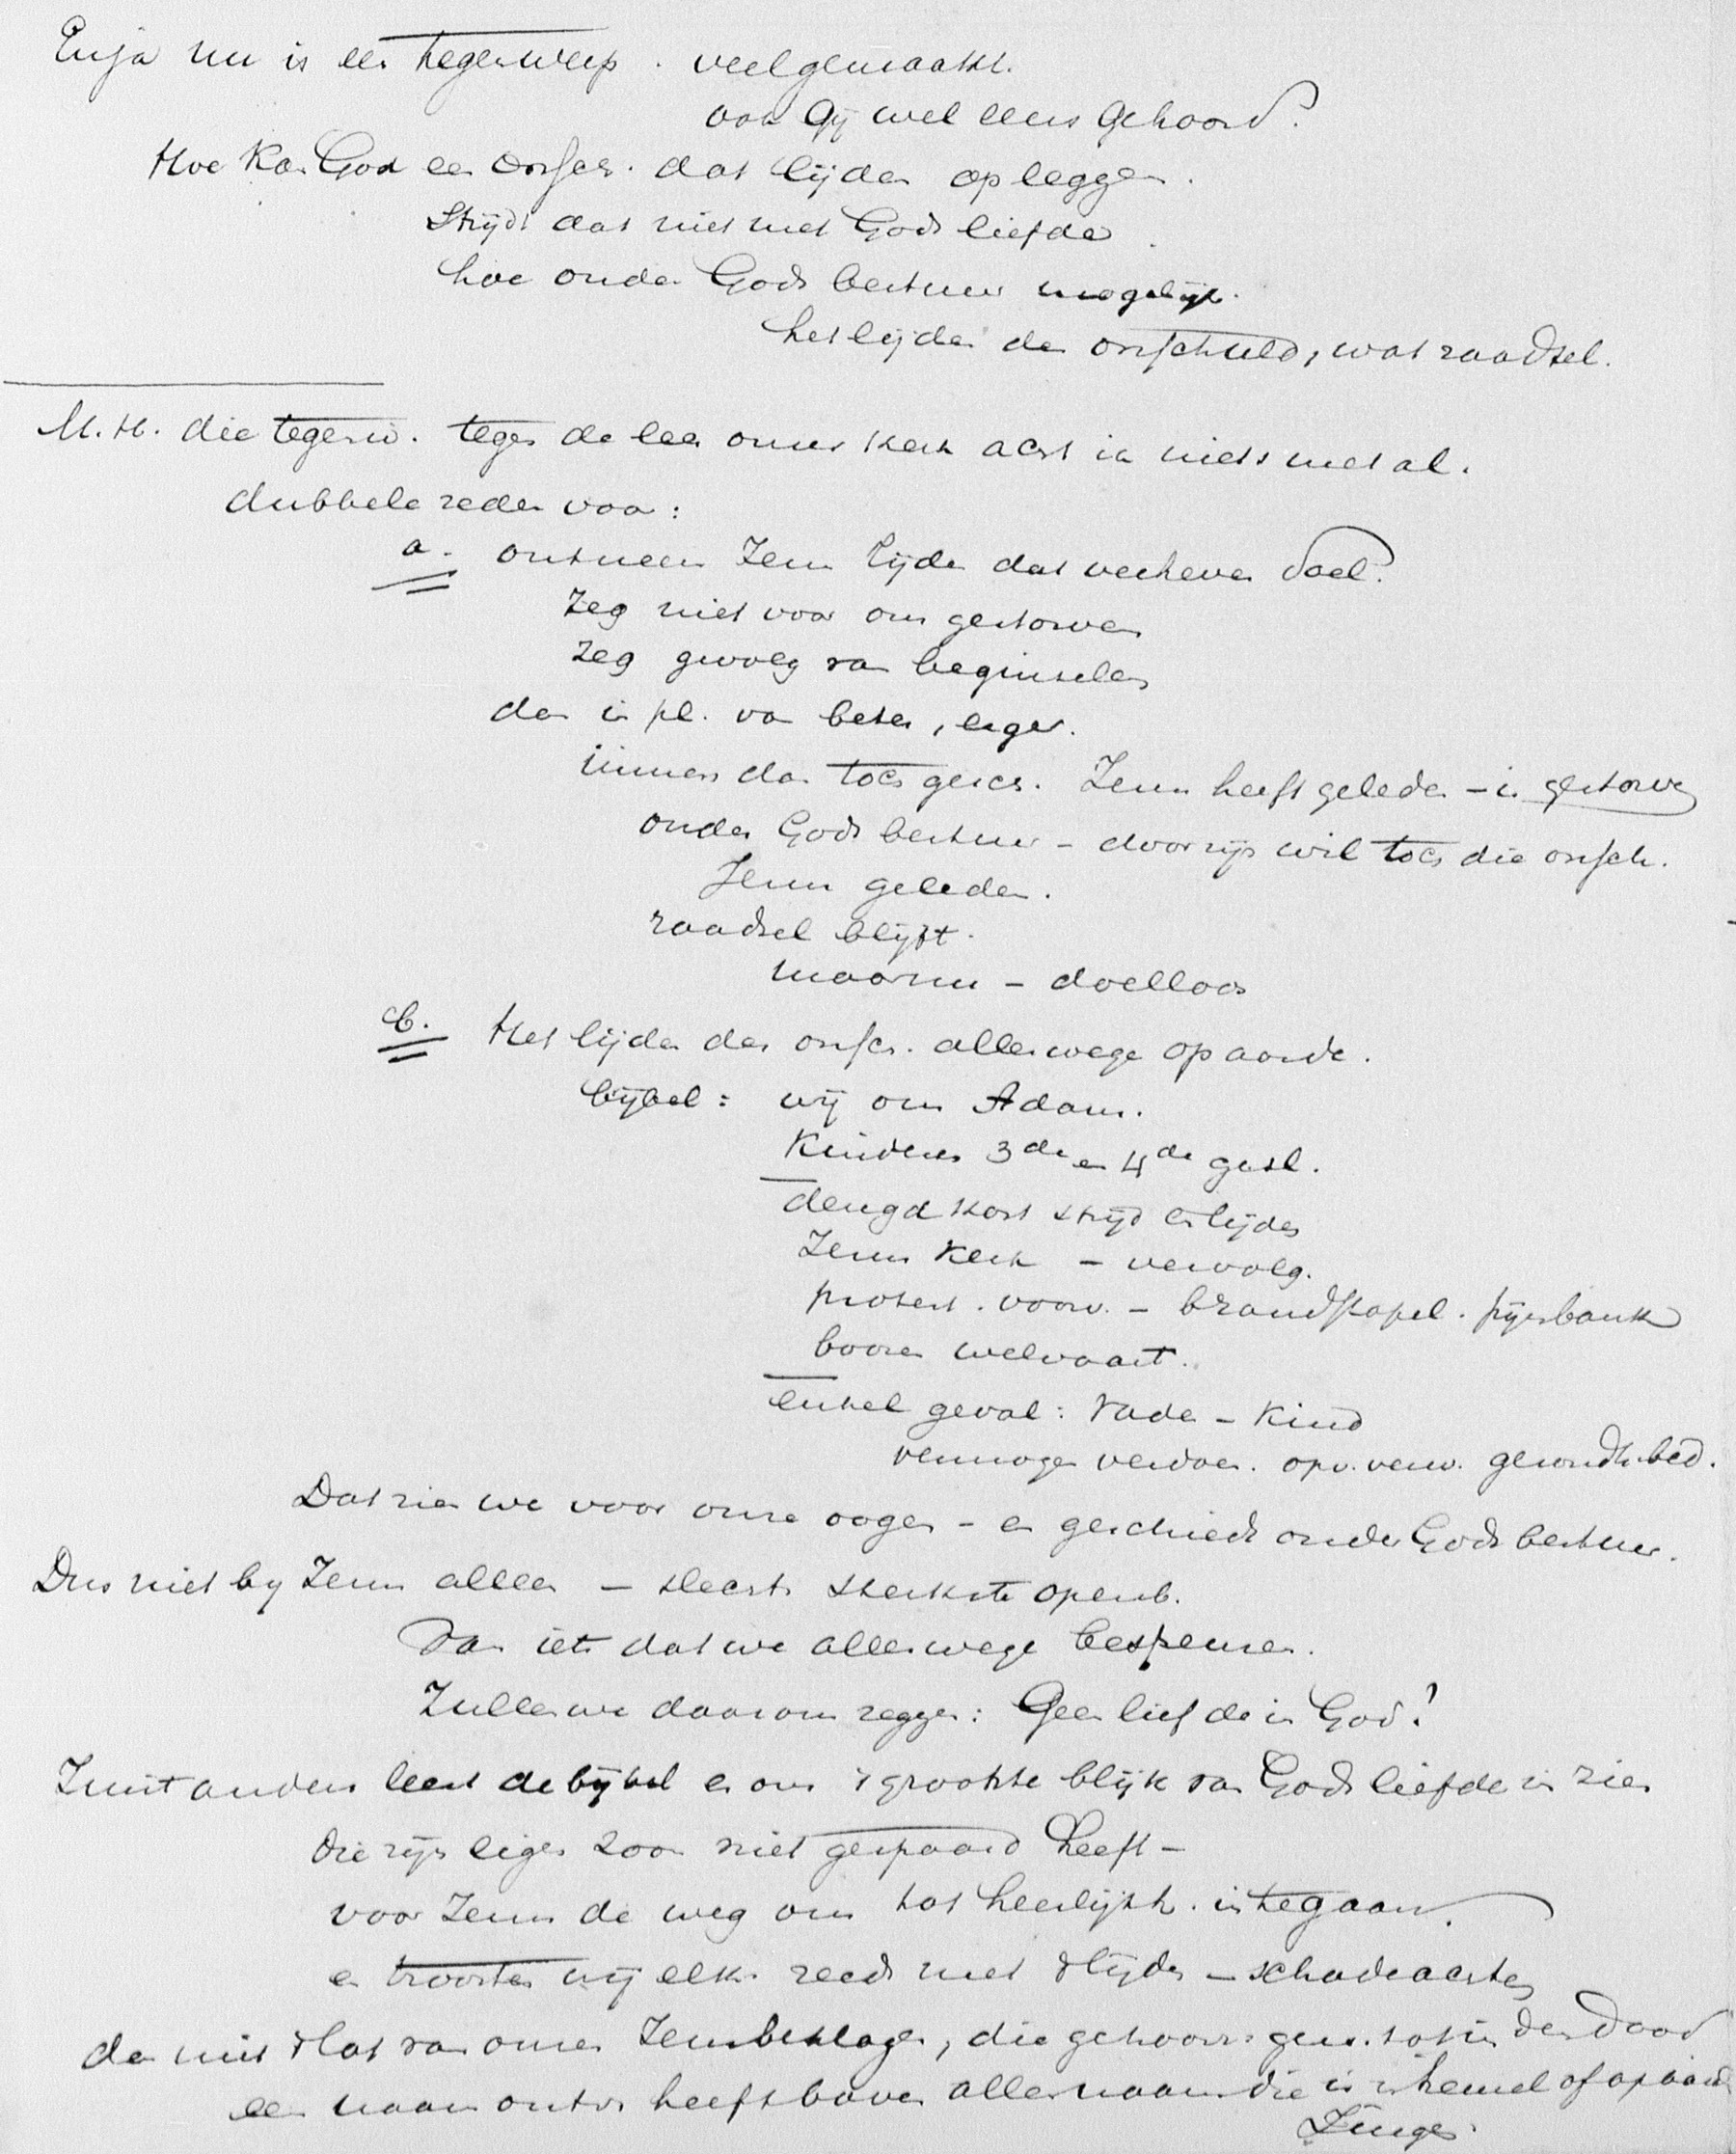 En ja nu is een tegenwerp. veel gemaakt.
ook Gij wel eens gehoord?
Hoe kan God een onsch. dat lijden opleggen.
Strijdt dat niet met Gods liefde
hoe onder Gods bestuur mogelijk.
het lijden der onschuld, wat raadsel.
M.H. die tegenw. tegen de leer onzer kerk acht ik niets met al.
dubbele reden voor:
a. ontneem Jezus lijden dat verheven doel.
Zeg niet voor ons gestorven
Zeg gevolg van beginselen
dan in pl. van beter, erger.
immers dan toch gesch. Jezus heeft geleden - is gestorven
onder Gods bestuur - door zijn wil toch die onsch.
Jezus geleden.
raadsel blijft.
maar nu - doelloos
b. Het lijden der onsch. allerwege op aarde.
bijbel: wij om Adam.
Kinderen 3de en 4de gesl.
deugd kost strijd en lijden
Jezus kerk - vervolg.
protest. voorv. - brandstapel. pijnbank
boozen welvaart.
enkel geval: Vader - Kind
vermogen verdwn. opv. verw. gezondh. bed.
Dat zien we voor onze oogen - en geschiedt onder Gods bestuur.
Dus niet by Jezus alleen - slechts sterkste openb.
van iets dat we allerwege bespeuren.
Zullen we daarom zeggen: Geen liefde in God?
Juist anders leert de bijbel er ons 't grootste blijk van Gods liefde in zien
die zijn eigen zoon niet gespaard heeft -
voor Jezus de weg om tot heerlijkh. in te gaan.
en troosten wij elk. reeds met 't lijden - schadeachten
dan niet 't lot van onzen Jezus beklagen, die gehoorz. gew. tot in den dood
een naam ontv. heeft boven allen naam die is in hemel of op aarde
Zingen.